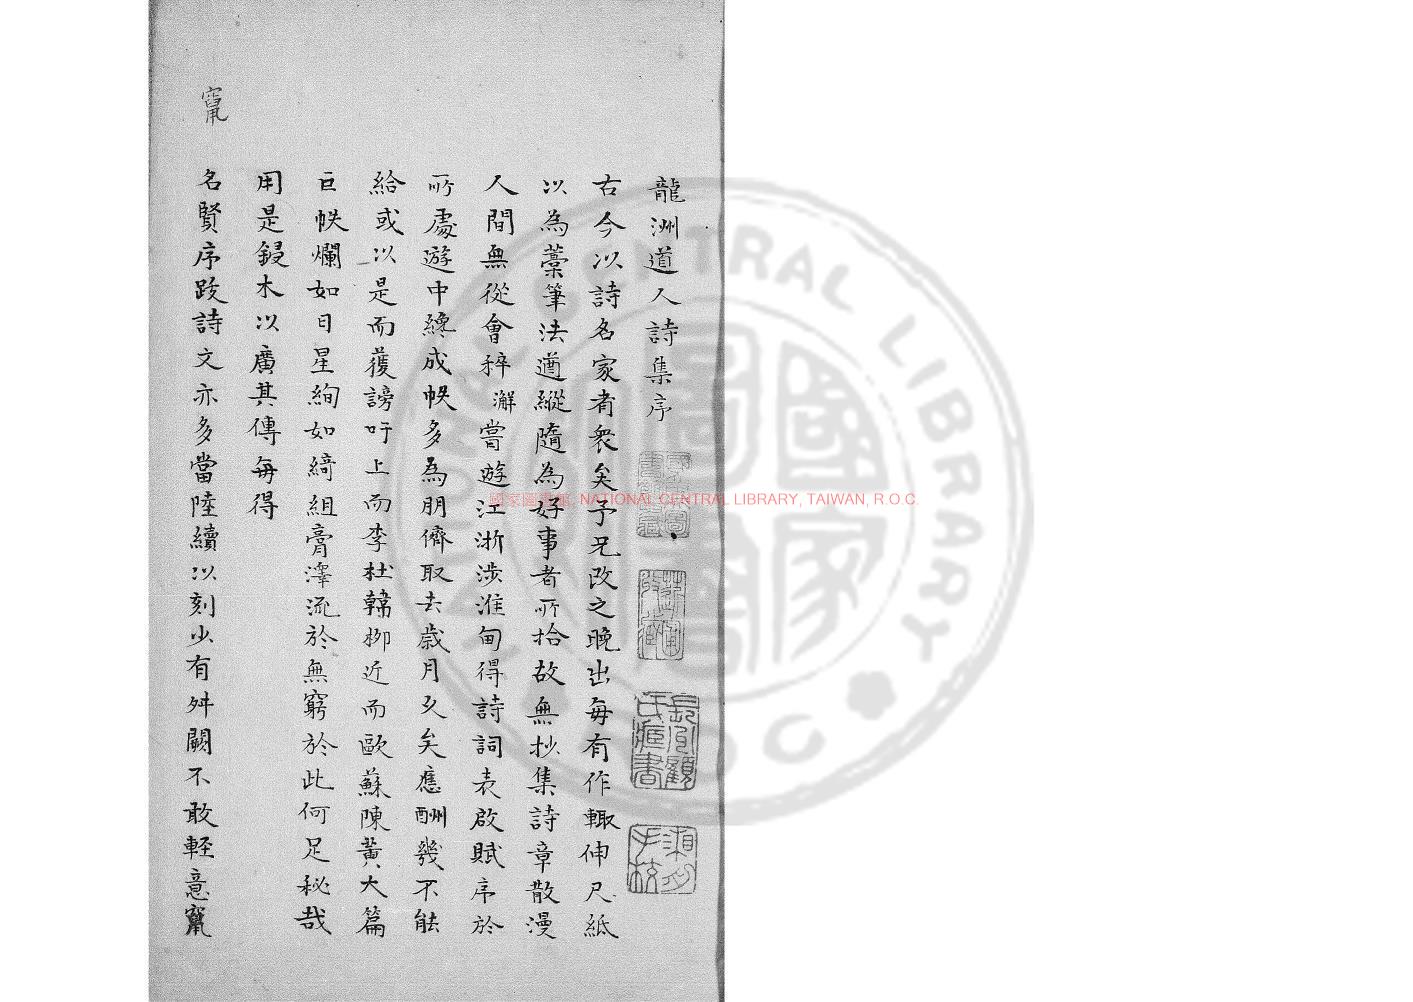 龍洲道人詩集序
古今以詩名家者衆矣予兄改之晚出每有作輙伸尺紙
以為藁筆法遒縱隨為好事者所拾故無抄集詩章散漫
人間無從會稡澥嘗遊江浙涉淮甸得詩詞表啟賦序於
所處遊中纔成帙多為朋儕取去歲月久矣應酬幾不能
給或以是而獲謗吁上而李杜韓柳近而歐蘇陳黃大篇
巨帙爛如日星絢如綺組膏澤流於無窮於此何足秘哉
用是鋟木以廣其傳每得
名賢序跋詩文亦多當陸續以刻少有舛闕不敢輕意竄
竄
國家圖書館, NATIONAL CENTRAL LIBRARY, TAIWAN, R.O.C.
NATIONAL CENTRAL LIBRARY
ROC
國家圖書館
長洲顧氏藏書
湘舟